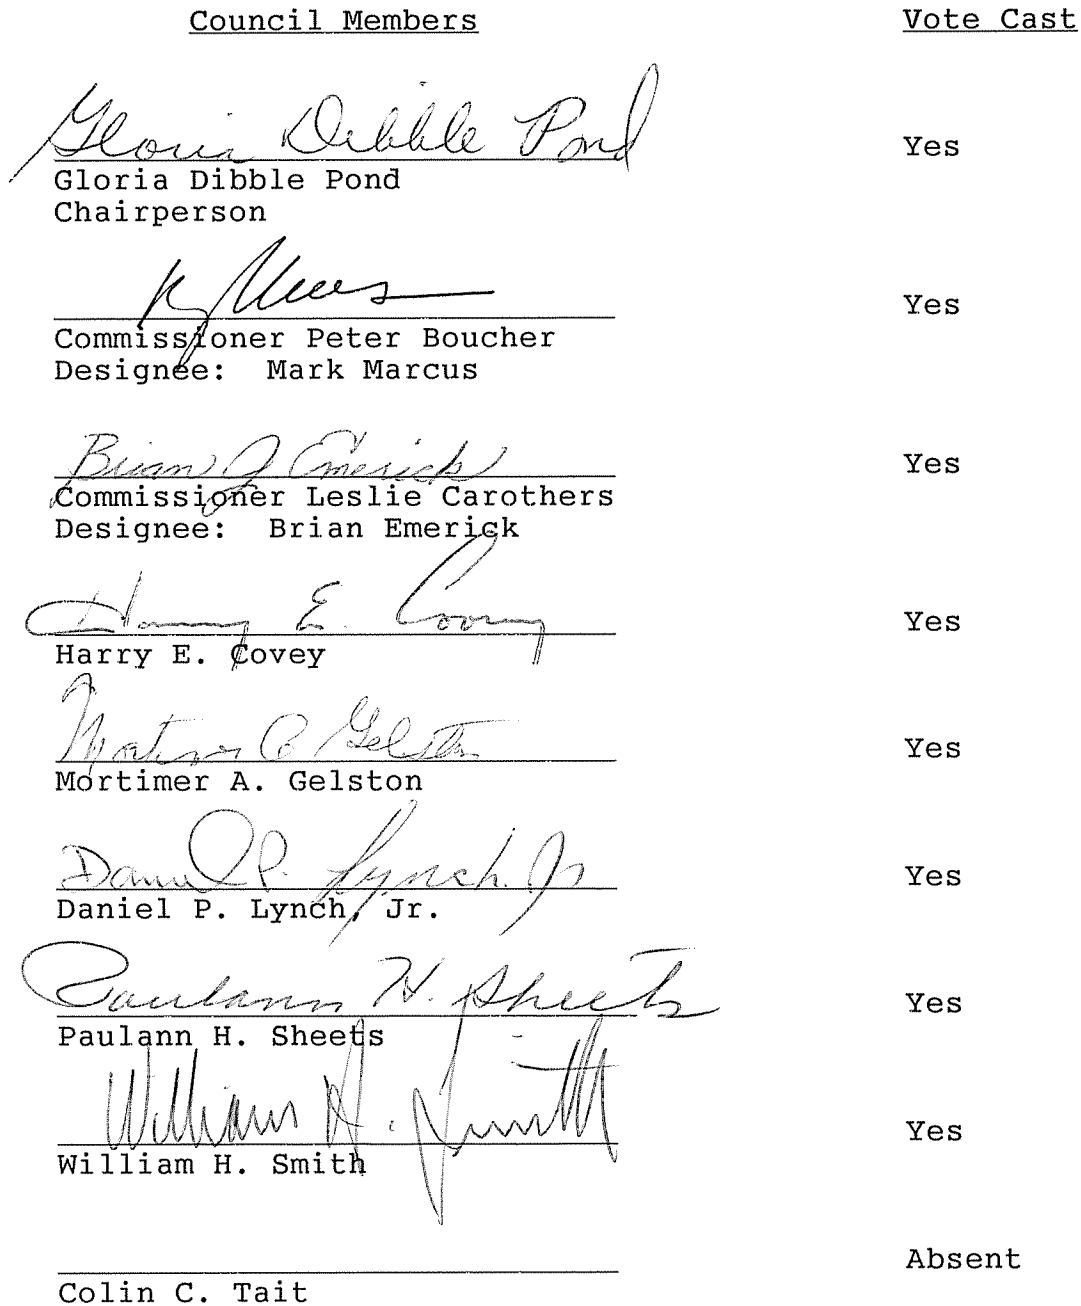 Council Members Vote Cast
Gloria Dibble Pond Yes
Gloria Dibble Pond
Chairperson
Yes
Commissioner Peter Boucher
Designee: Mark Marcus
Brian J Emerick Yes
Commissioner Leslie Carothers
Designee: Brian Emerick
Harry E. Covey Yes
Harry E. Covey
Mortimer A Gelston Yes
Mortimer A. Gelston
Daniel P. Lynch Jr Yes
Daniel P. Lynch, Jr.
Paulann H. Sheets Yes
Paulann H. Sheets
William H. Smith Yes
William H. Smith
Absent
Colin C. Tait